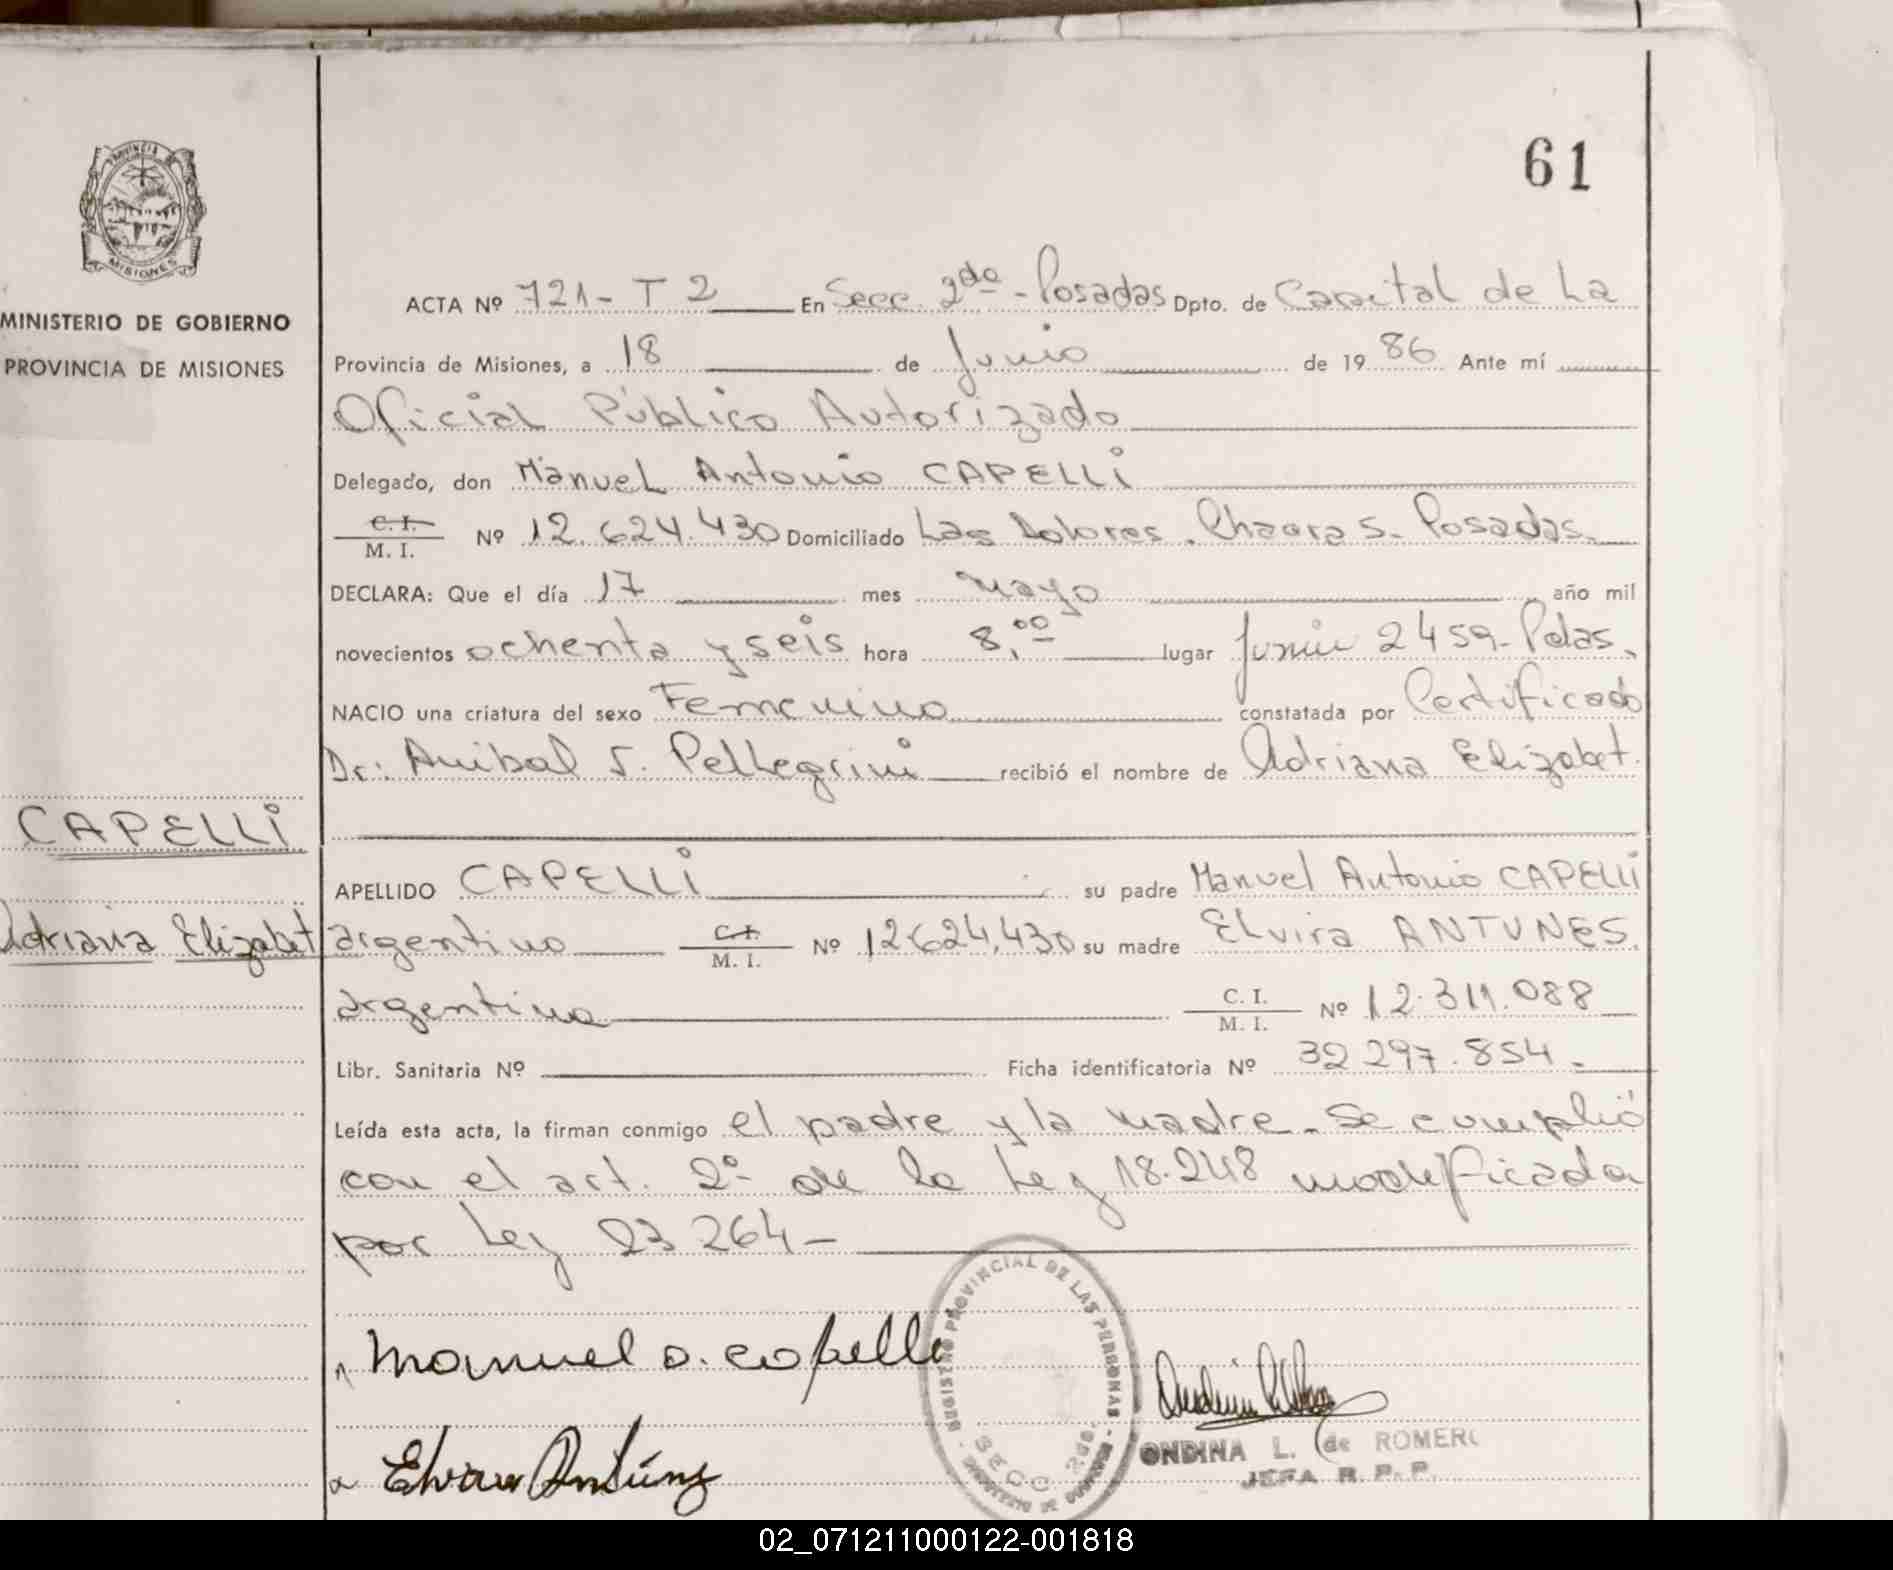 61
PROVINCIA DE
MISIONES
MINISTERIO DE GOBIERNO
PROVINCIA DE MISIONES
ACTA Nº 721 - T 2 En Secc. 2da - Posadas Dpto. de Capital de La
Provincia de Misiones, a 18 de Junio de 1986 Ante mí
Oficial Público Autorizado
Delegado, don Manuel Antonio CAPELLI
C. I.
M. I. Nº 12.624.430 Domiciliado Las Dolores. Chacra 5. Posadas.
DECLARA: Que el día 17 mes mayo año mil
novecientos ochenta y seis hora 8,00 lugar Junin 2459 - Pdas.
NACIO una criatura del sexo Femenino constatada por Certificado
Dr: Anibal S. Pellegrini recibió el nombre de Adriana Elizabet.
CAPELLI
Adriana Elizabet
APELLIDO CAPELLI su padre Manuel Antonio CAPELLI
argentino C.I. M. I. Nº 12624.430 su madre Elvira ANTUNES.
argentina C. I. M. I. Nº 12.311.088
Libr. Sanitaria Nº Ficha identificatoria Nº 32 297.854 -
Leída esta acta, la firman conmigo el padre y la madre. Se cumplió
con el art. 2º de la Ley 18.248 modificada
por Ley 23 264 -
Manuel a. Capelli
Elvira Antúnez
REGISTRO PROVINCIAL DE LAS PERSONAS - MINISTERIO DE GOBIERNO -
SECC 2da
ONDINA L. de ROMERO
JEFA R. P. P.
02_071211000122-001818